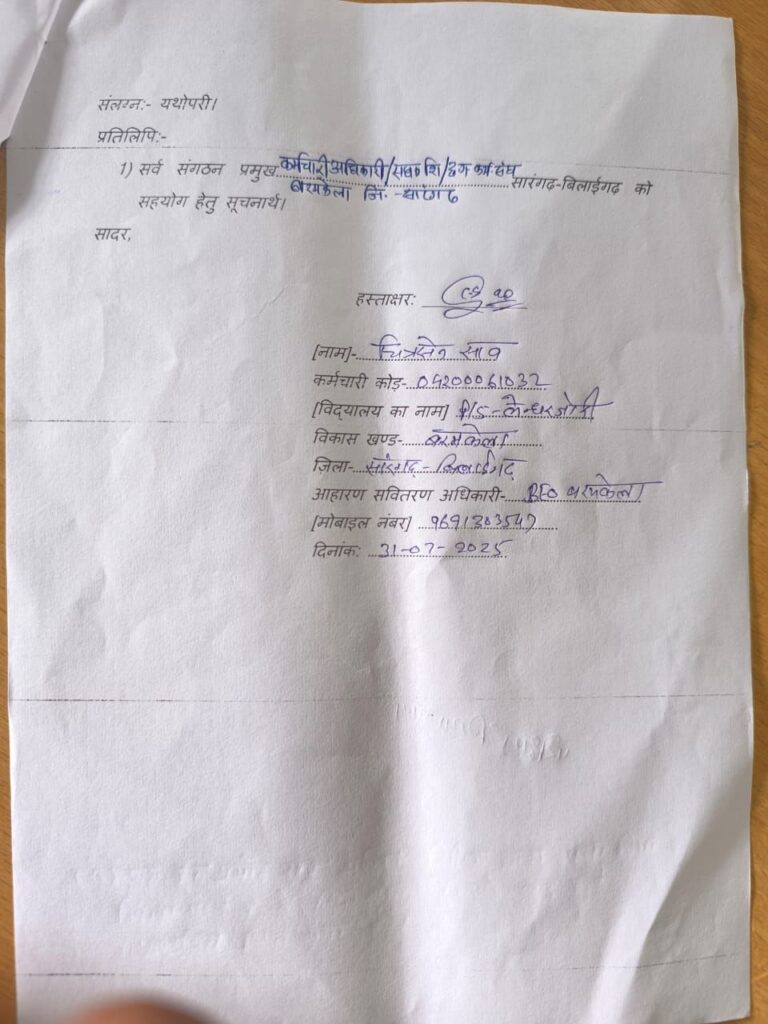 संलग्न:- यथोपरी।
प्रतिलिपि:-
1) सर्व संगठन प्रमुख कर्मचारी अधिकारी/ सारंगढ़-बिलाईगढ़ को
बरमकेला जि. -सारंगढ
सहयोग हेतु सूचनार्थ।
सादर,
हस्ताक्षर:
[नाम]- चित्रसेन साव
कर्मचारी कोड़- 04200061032
[विद्यालय का नाम] P/S-
विकास खण्ड- बरमकेला
ज़िला- सारंगढ़ - बिलाईगढ़
आहारण सवितरण अधिकारी- BEO बरमकेला
[मोबाइल नंबर] 9691303547
दिनांक: 31-07-2025